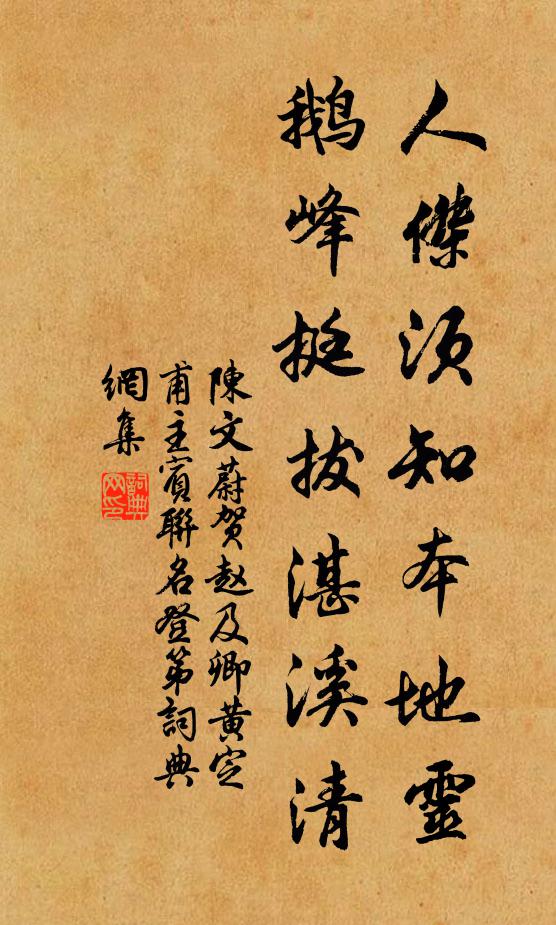 人傑須知本地靈
鹅峰挺拔湛溪清
陳文蔚贺赵及卿黄定
甫主賓聯名登第詞典
網集
詞典网印